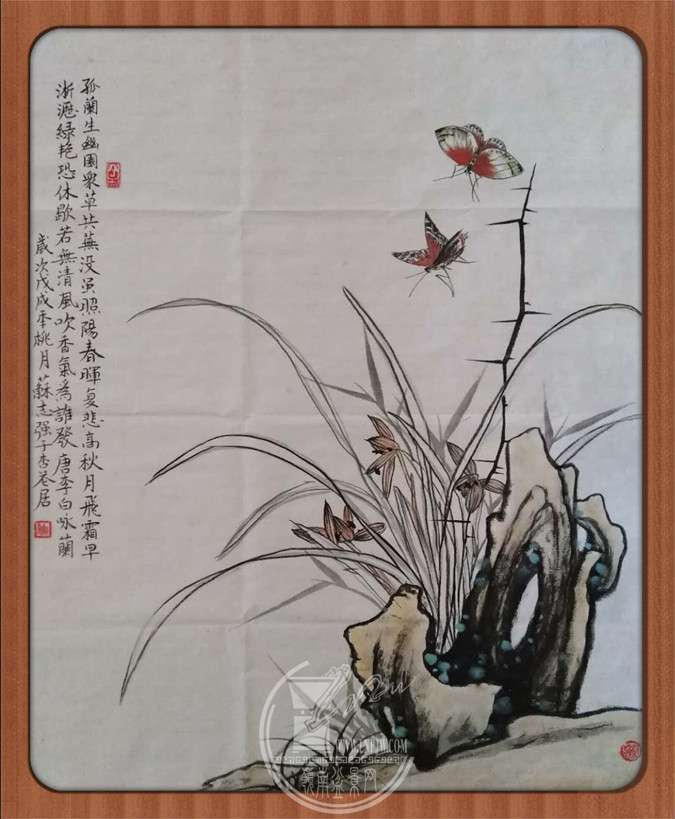 孤蘭生幽園衆草共蕪没虽照陽春暉复悲高秋月飛霜早
淅瀝緑艳恐休歇若無清風吹香氣為誰發唐李白咏蘭
歲次戊戌季桃月蘇志强于杏苍居
嶺南盆景网